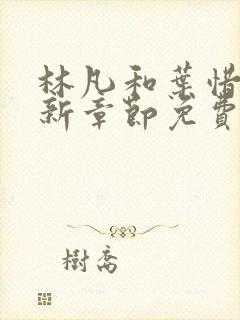 林凡和葉惜
新章節免費
樹喬